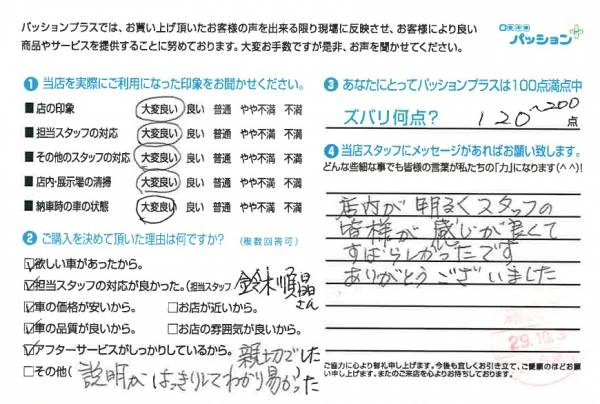 パッションプラスでは、お買い上げ頂いたお客様の声を出来る限り現場に反映させ、お客様により良い
商品やサービスを提供することに努めております。大変お手数ですが是非、お声を聞かせてください。
パッション
① 当店を実際にご利用になった印象をお聞かせください。
■店の印象 大変良い 良い 普通 やや不満 不満
■担当スタッフの対応 大変良い 良い 普通 やや不満 不満
■その他のスタッフの対応 大変良い 良い 普通 やや不満 不満
■店内・展示場の清掃 大変良い 良い 普通 やや不満 不満
■納車時の車の状態 大変良い 良い 普通 やや不満 不満
② ご購入を決めて頂いた理由は何ですか? (複数回答可)
☑欲しい車があったから。
☑担当スタッフの対応が良かった。(担当スタッフ 鈴木順 さん
☑車の価格が安いから。 □お店が近いから。
☑車の品質が良いから。 □お店の雰囲気が良いから。
☑アフターサービスがしっかりしているから。 親切でした
□その他( 説明がはっきりしてわかり易かった
③ あなたにとってパッションプラスは100点満点中
ズバリ何点? 120~200点
④ 当店スタッフにメッセージがあればお願い致します。
どんな些細な事でも皆様の言葉が私たちの「力」になります(^^)!
店内が明るくスタッフの
皆様が感じが良くて
すばらしかったです
ありがとうございました
29.10.
ご協力に心より御礼申し上げます。今後も宜しくお引き立て、ご愛顧のほどお願
い申し上げます。またのご来店を心よりお待ちしております。